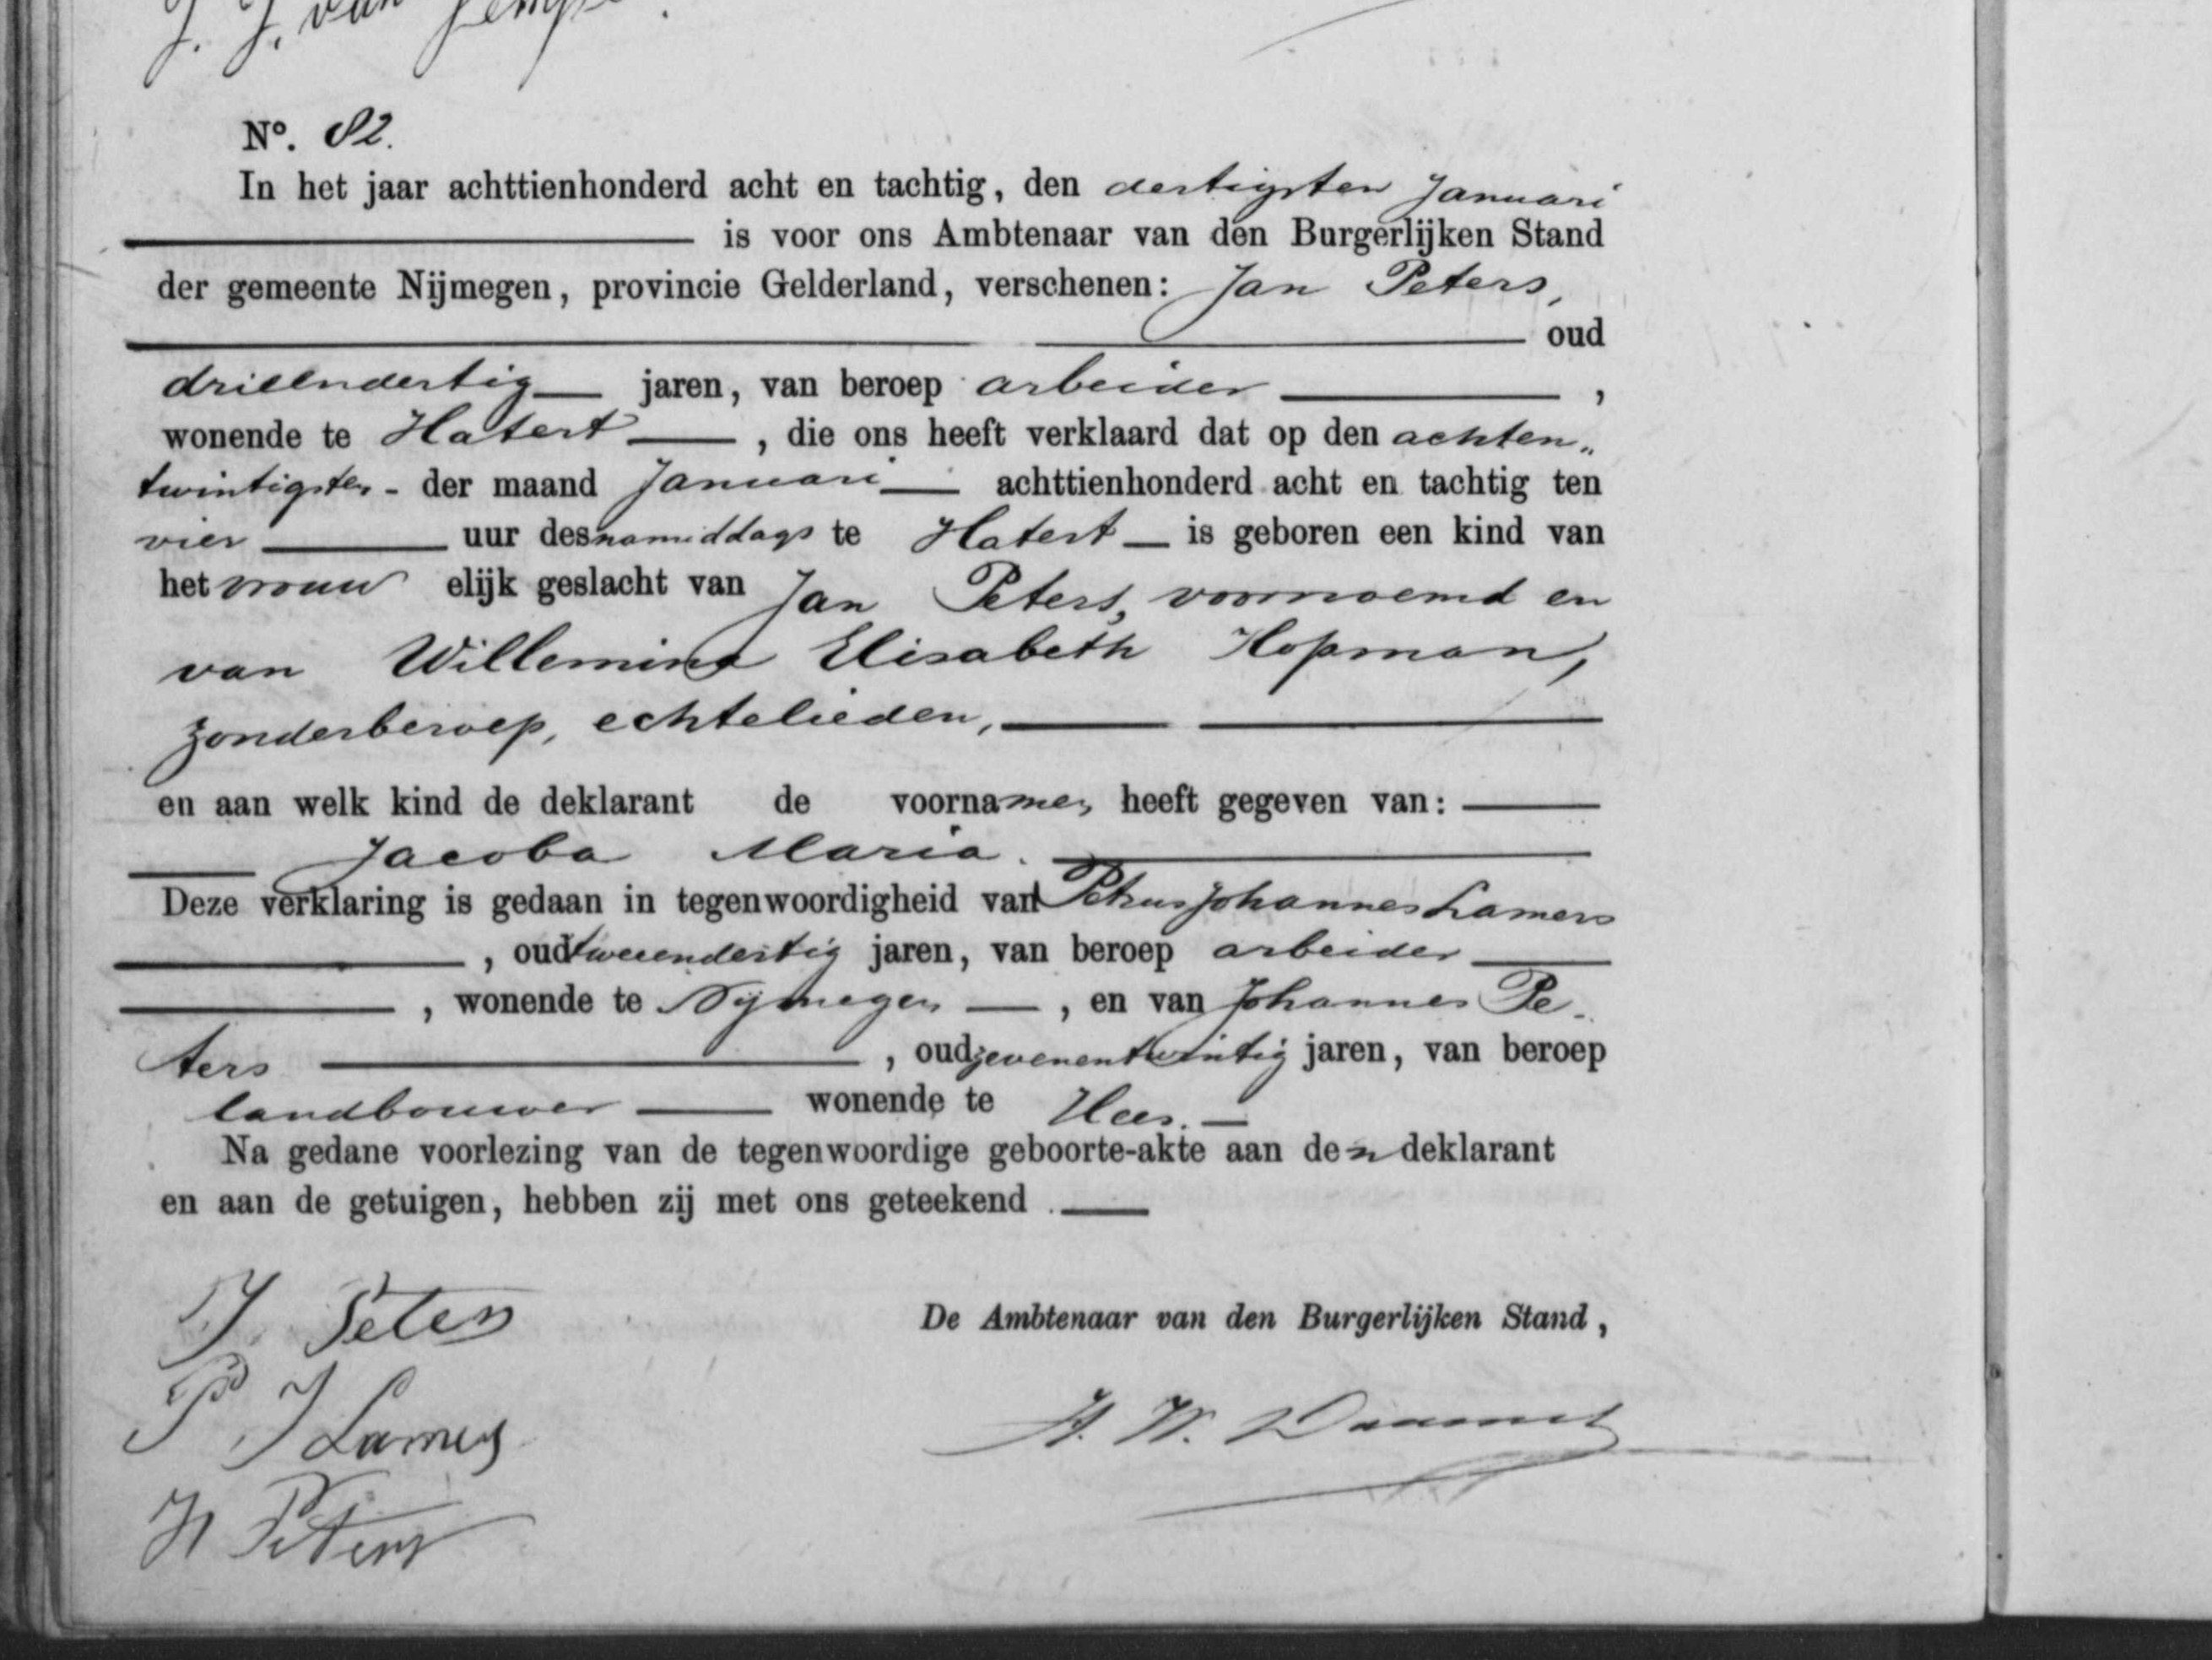 J. J. van
Nº. 82.
In het jaar achttienhonderd acht en tachtig, den dertigsten Januari
is voor ons Ambtenaar van den Burgerlijken Stand
der gemeente Nijmegen, provincie Gelderland, verschenen: Jan Peters,
oud
drieëndertig jaren, van beroep arbeider ,
wonende te Hatert , die ons heeft verklaard dat op den achten„
twintigsten - der maand Januari achttienhonderd acht en tachtig ten
vier uur des namiddags te Hatert is geboren een kind van
het vrouw elijk geslacht van Jan Peters, voornoemd en
van Willemina Elisabeth Hopman,
zonder beroep, echtelieden,
en aan welk kind de deklarant de voornamen heeft gegeven van:
Jacoba Maria.
Deze verklaring is gedaan in tegenwoordigheid van Petrus Johannes Lamers
, oud tweeendertig jaren, van beroep arbeider
, wonende te Nijmegen , en van Johannes Pe-
ters , oud zevenentwintig jaren, van beroep
landbouwer wonende te Hees.
Na gedane voorlezing van de tegenwoordige geboorte-akte aan den deklarant
en aan de getuigen, hebben zij met ons geteekend .
J. Peters
De Ambtenaar van den Burgerlijken Stand,
P J Lamers
H. W.
H Peters